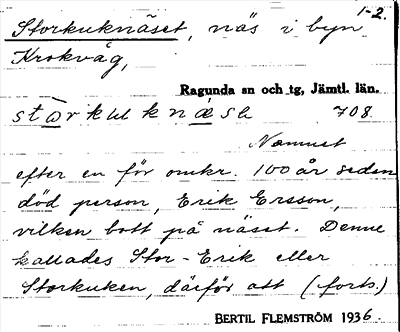 1-2.
Storkuknäset, näs i byn
Krokvåg,
Ragunda sn och tg, Jämtl. län.
stòrkuknǽsə 708.
Nämnet
efter en för omkr. 100 år sedan
död person, Erik Ersson,
vilken bott på näset. Denne
kallades Stor-Erik eller
Storkuken, därför att (forts.)
BERTIL FLEMSTRÖM 1936.